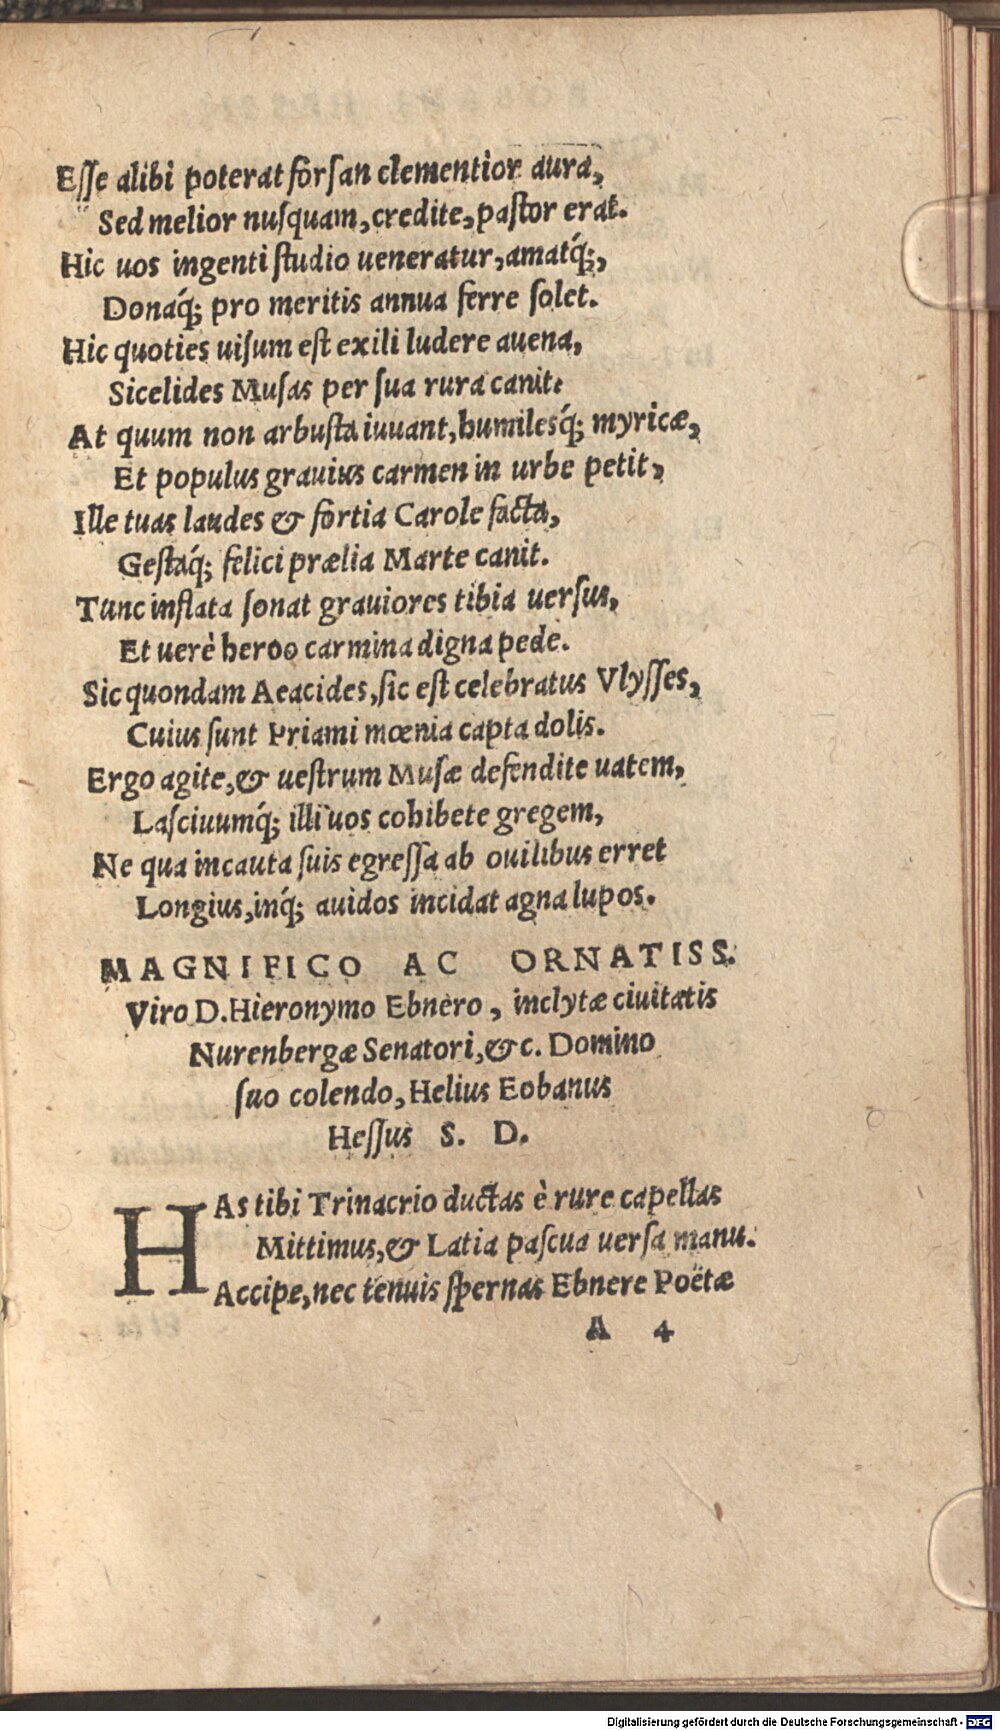 Eſſe alibi poterat forſan clementior aura,
Sed melior nuſquam, credite, paſtor erat.
Hic uos ingenti ſtudio ueneratur, amatq́;,
Donaq́; pro meritis annua ferre ſolet.
Hic quoties uiſum est exili ludere auena,
Sicelides Muſas per ſua rura canit.
At quum non arbuſta iuuant, humilesq́; myricæ,
Et populus grauius carmen in urbe petit,
Ille tuas laudes & fortia Carole facta,
Geſtaq́; felici prælia Marte canit.
Tunc inflata ſonat grauiores tibia uerſus,
Et uerè heroo carmina digna pede.
Sic quondam Aeacides, ſic eſt celebratus Vlyſſes,
Cuius ſunt Priami mœnia capta dolis.
Ergo agite, & ueſtrum Muſæ defendite uatem,
Laſciuumq́; illi uos cohibete gregem,
Ne qua incauta ſuis egreſſa ab ouilibus erret
Longius, inq́; auidos incidat agna lupos.
MAGNIFICO AC ORNATISS.
Viro D. Hieronymo Ebnero, inclytæ ciuitatis
Nurenbergæ Senatori, &c. Domino
ſuo colendo, Helius Eobanus
Heſſus S. D.
HAs tibi Trinacrio ductas è rure capellas
Mittimus, & Latia paſcua uerſa manu.
Accipe, nec tenuis ſpernas Ebnere Poëtæ
A 4
Digitalisierung gefördert durch die Deutsche Forschungsgemeinschaft - DFG